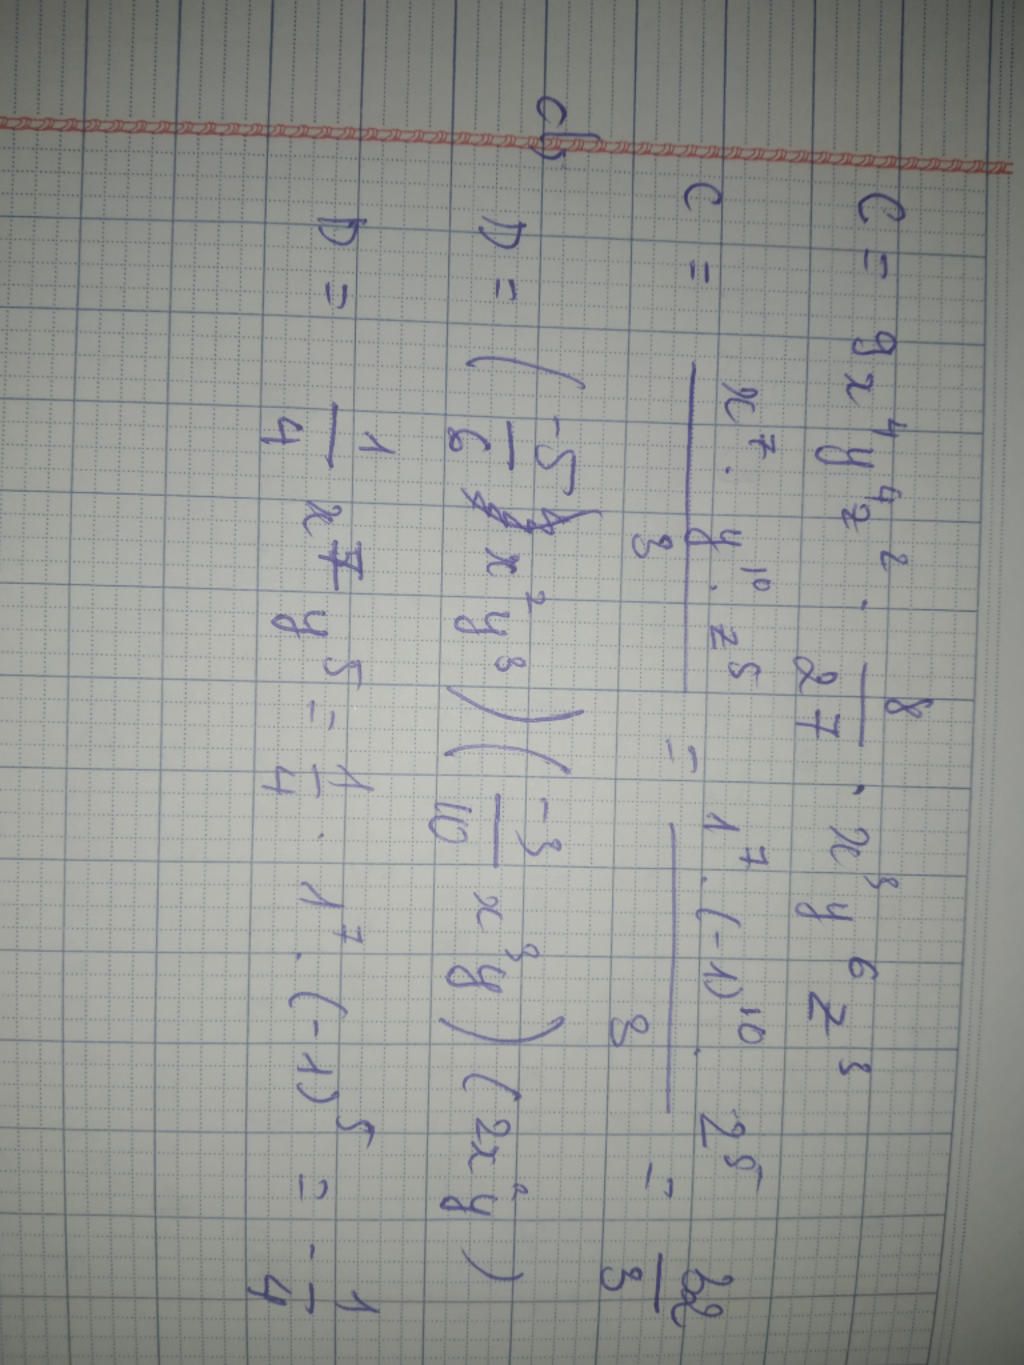 C = 9x⁴y⁴z² . 8/27 . x³y⁶z³
C = x⁷ . y¹⁰ . z⁵ / 3 = 1⁷ . (-1)¹⁰ . 2⁵ / 3 = 32/3
d)
D = (-5/6 x²y³)(-3/10 x³y)(2x²y)
D = 1/4 x⁷y⁵ = 1/4 . 1⁷ . (-1)⁵ = -1/4